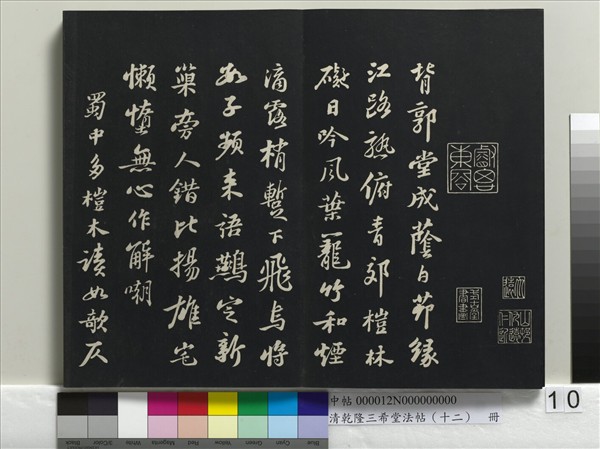 背郭堂成蔭白茆緣
江路熟俯青郊榿林
礙日吟風葉籠竹和煙
滴露梢暫下飛烏將
數子頻來語鷰定新
巢旁人錯比揚雄宅
懶惰無心作解嘲
蜀中多榿木讀如欹仄
中帖 000012N000000000
清乾隆三希堂法帖（十二） 冊
10
Black 3/Color White Magenta Red Yellow Green Cyan Blue